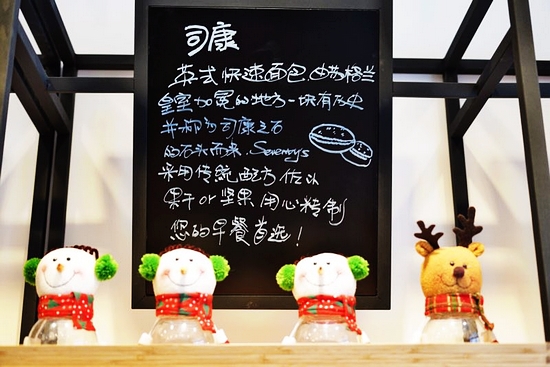 司康
英式快速面包,由苏格兰
皇室加冕的地方一块有历史
并称为司康之石
的石头而来,Sevenoys
采用传统配方佐以
果干or坚果用心精制
您的早餐首选!